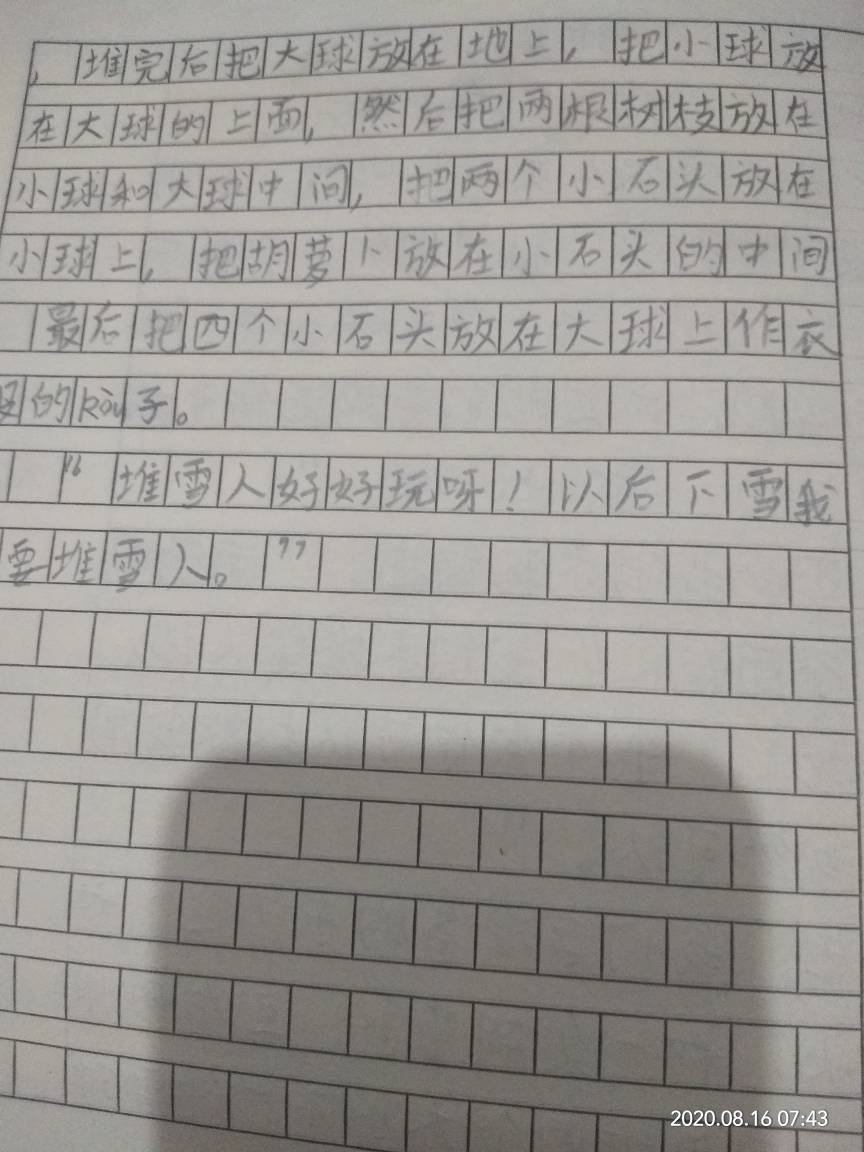 ，堆完后把大球放在地上，把小球放
在大球的上面，然后把两根树枝放在
小球和大球中间，把两个小石头放在
小球上，把胡萝卜放在小石头的中间
最后把四个小石头放在大球上作衣
的kòu子。
“堆雪人好好玩呀！以后下雪我
要堆雪人。”
2020.08.16 07:43